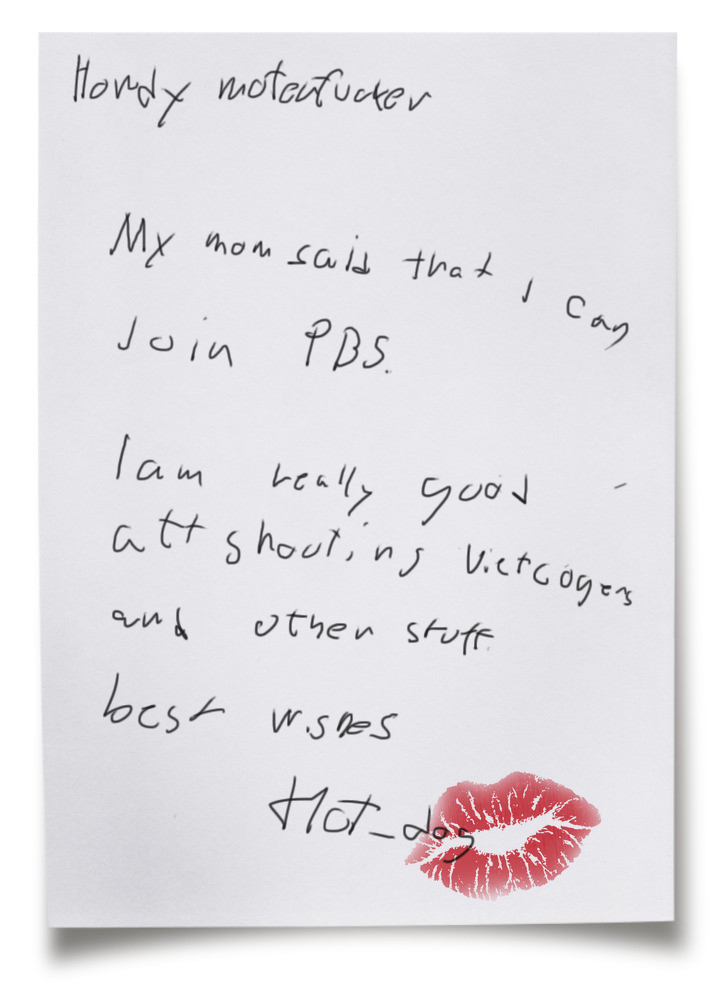 Howdy moterfucker
My mom said that I can
Join PBS.
I am really good
att shouting Vietcogens
and other stuff.
best wishes
Hot_dog